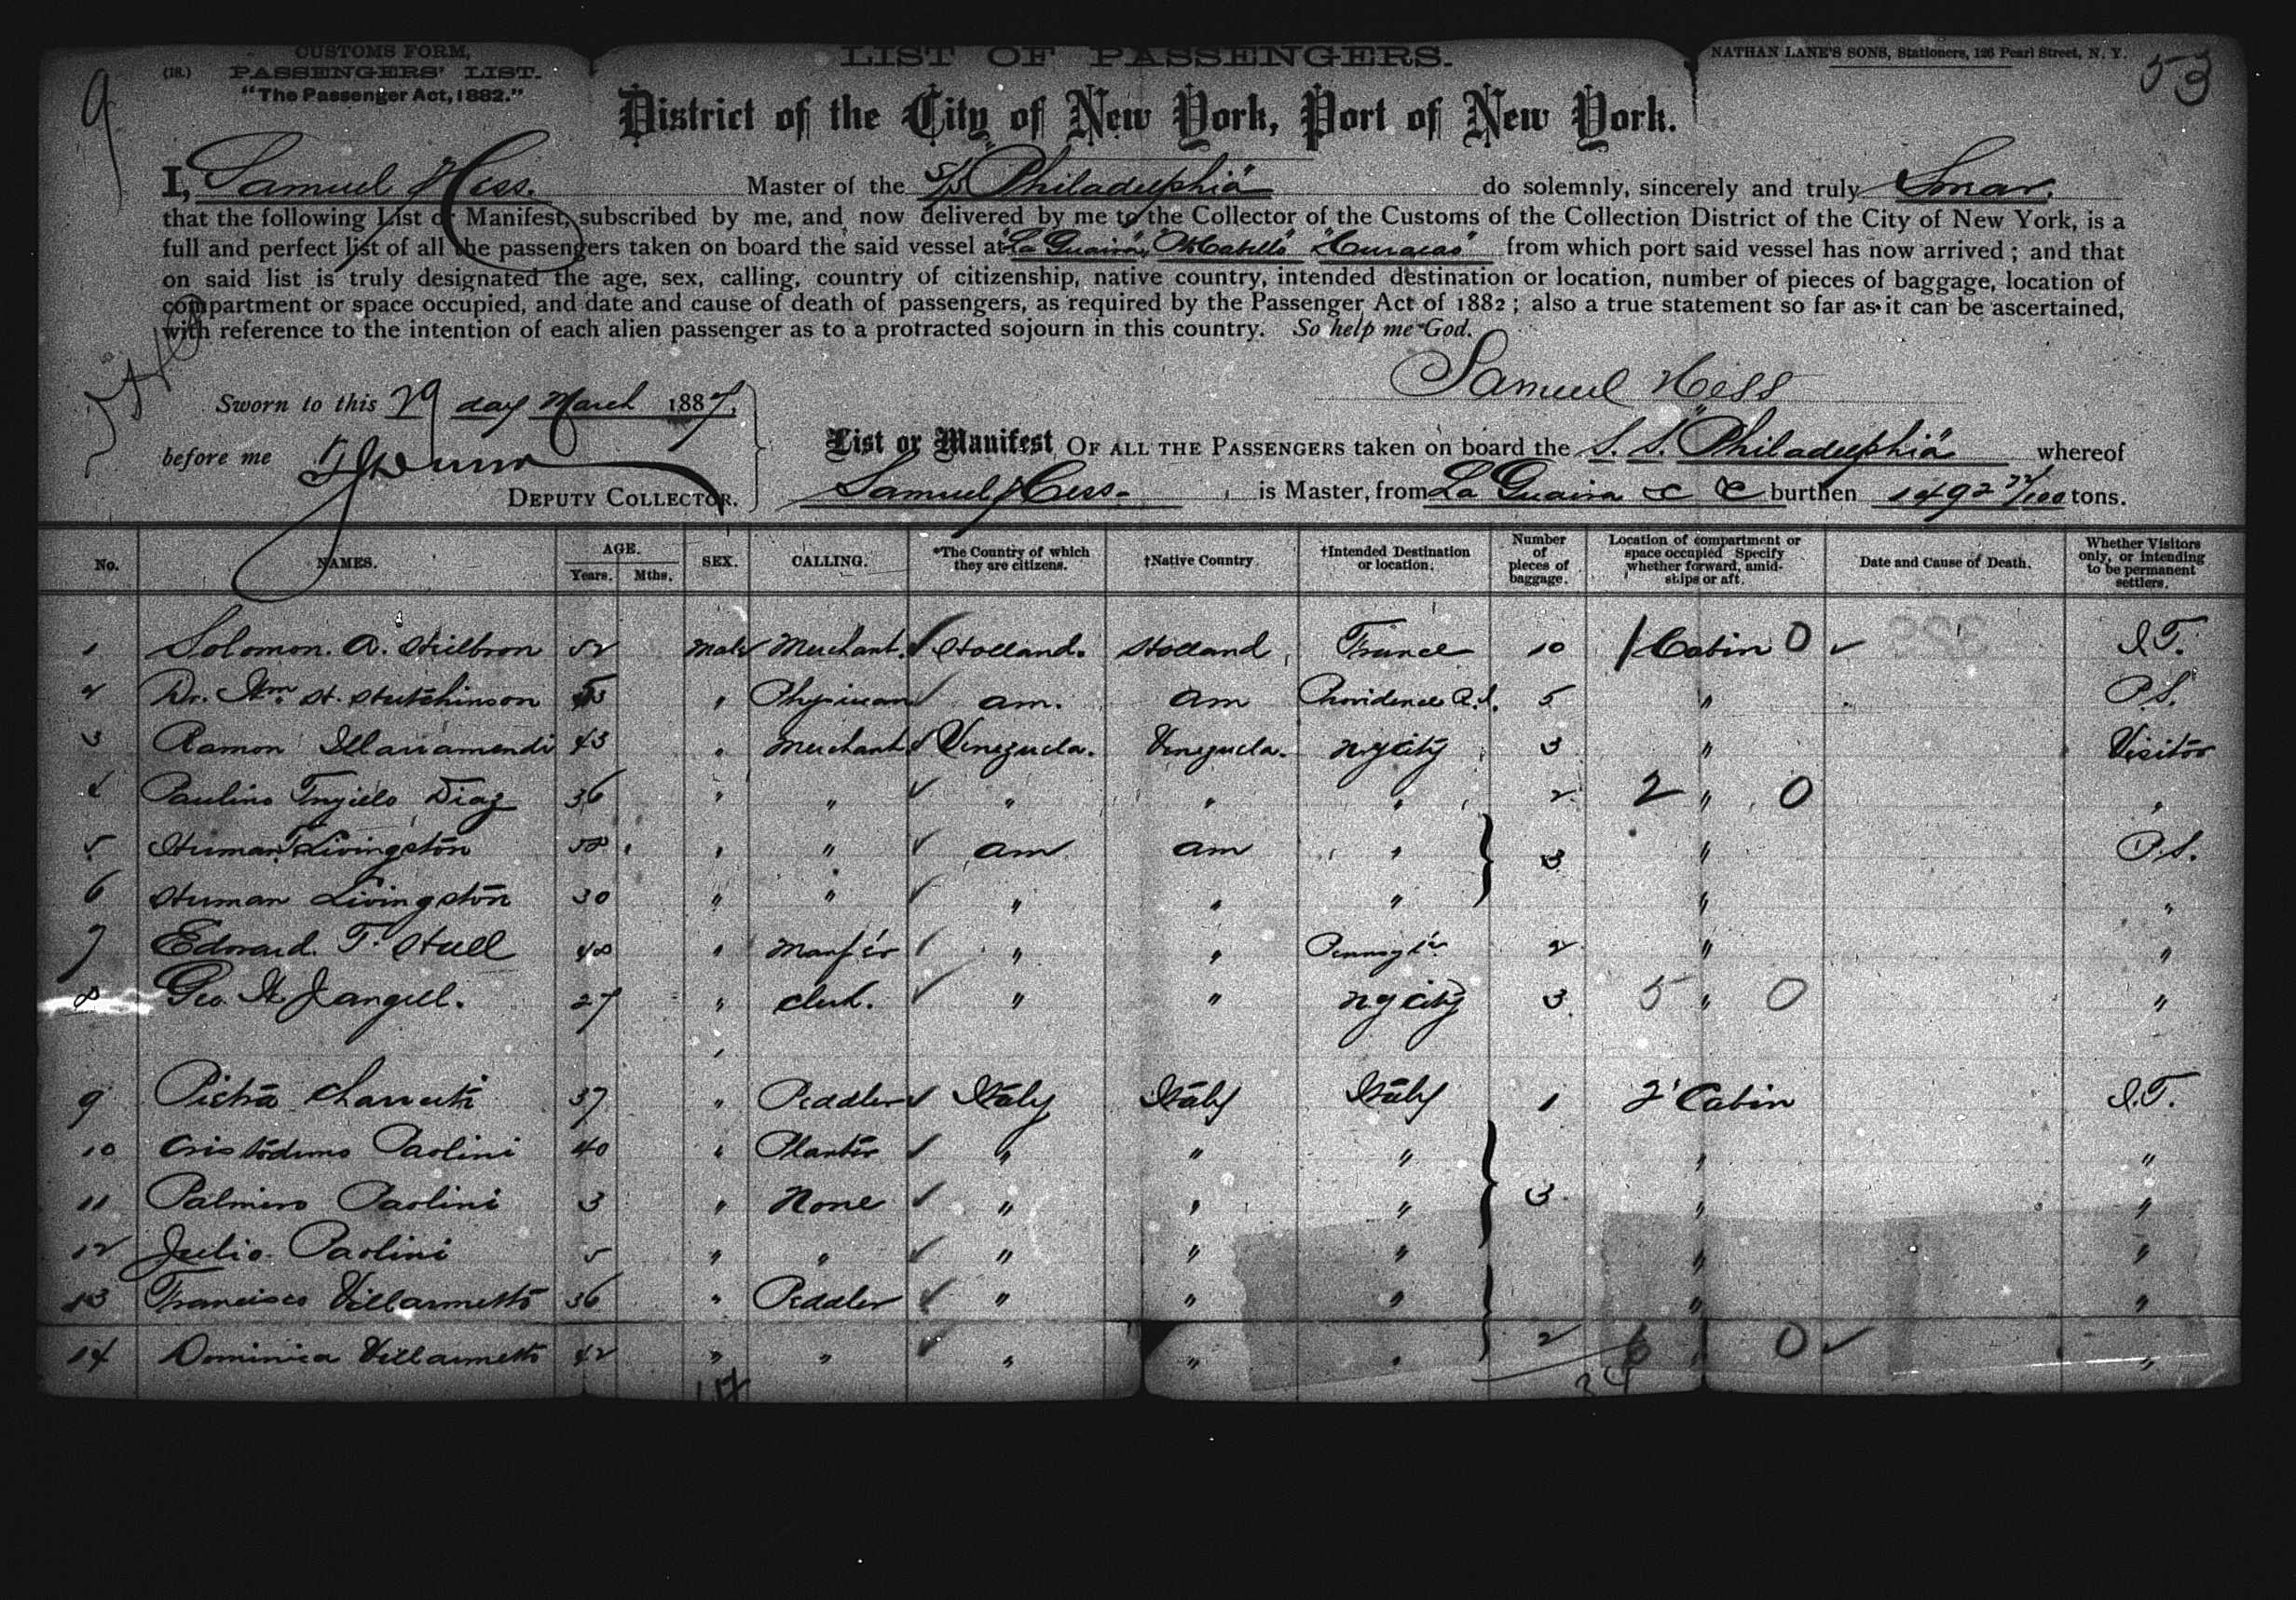 CUSTOMS FORM,
(18.) PASSENGERS' LIST.
"The Passenger Act, 1882."
LIST OF PASSENGERS.
NATHAN LANE'S SONS, Stationers, 126 Pearl Street, N. Y.
9
53
District of the City of New York, Port of New York.
I, Samuel Hess. Master of the S/S "Philadelphia" do solemnly, sincerely and truly Swear.
that the following List or Manifest, subscribed by me, and now delivered by me to the Collector of the Customs of the Collection District of the City of New York, is a
full and perfect list of all the passengers taken on board the said vessel at "La Guaira", "P. Cabello" "Curacao" from which port said vessel has now arrived; and that
on said list is truly designated the age, sex, calling, country of citizenship, native country, intended destination or location, number of pieces of baggage, location of
compartment or space occupied, and date and cause of death of passengers, as required by the Passenger Act of 1882; also a true statement so far as it can be ascertained,
with reference to the intention of each alien passenger as to a protracted sojourn in this country. So help me God.
Samuel Hess
Sworn to this 29 day March 1887,
before me
DEPUTY COLLECTOR.
List or Manifest OF ALL THE PASSENGERS taken on board the S. S. "Philadelphia" whereof
Samuel Hess. is Master, from La Guaira & C burthen 1492 72/100 tons.
No. NAMES. AGE. Years. Mths. SEX. CALLING. *The Country of which they are citizens. †Native Country †Intended Destination or location. Number of pieces of baggage. Location of compartment or space occupied Specify whether forward, amidships or aft. Date and Cause of Death. Whether Visitors only, or intending to be permanent settlers.
1 Solomon. A. Heilbron 52 Male Merchant. Holland. Holland France 10 1 Cabin 0 I.T.
2 Dr. Wm. H. Hutchinson " Physician am. am Providence R.I. 5 " P.S.
3 Ramon Illarramendi 43 " Merchant Venezuela. Venezuela. N.Y City 3 " Visitor
4 Paulino Diaz 36 " " " " " 2 2 " 0 "
5 Herman Livingston 58 " " am am " 3 " P.S.
6 Herman Livingston 30 " " " " " " "
7 Edward. T. Hull 48 " Manf'er " " 2 " "
8 Geo. W. Jangell. 27 " Clerk. " " N.Y City 3 5 " 0 "
9 Pietra 37 " Peddler Italy Italy Italy 1 2' Cabin I.T.
10 Cristodemo Paolini 40 " Planter " " " " "
11 Palmiro Paolini 3 " None " " " 3 " "
12 Julio Paolini 5 " " " " " " "
13 Francisco Villarmetto 36 " Peddler " " " " "
14 Dominica Villarmetto 42 " " " " " 2 6 " 0 "
34